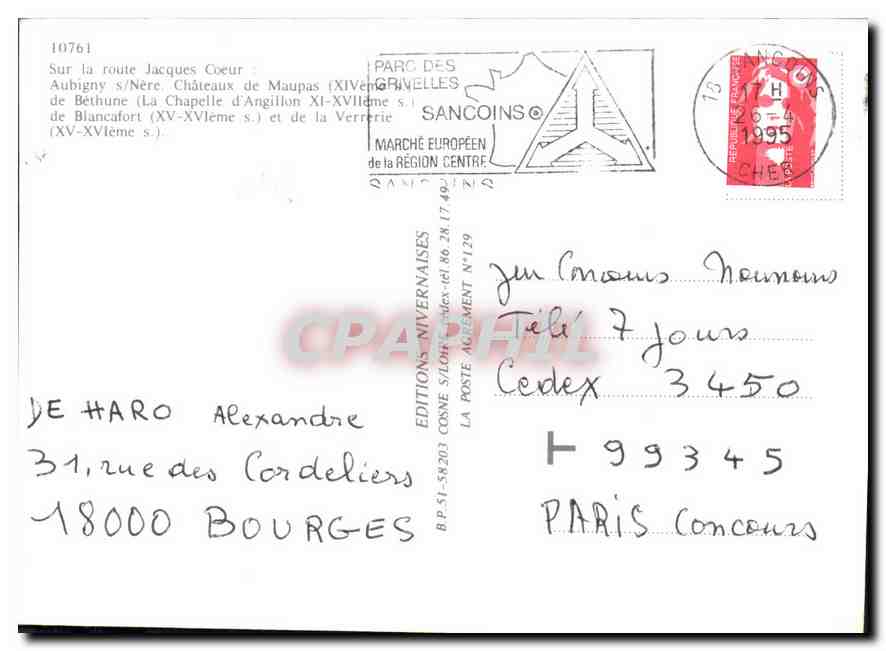 10761
Sur la route Jacques Coeur :
Aubigny s/Nère. Châteaux de Maupas (XIVème s.)
de Béthune (La Chapelle d'Angillon XI-XVIIème s.)
de Blancafort (XV-XVIème s.) et de la Verrerie
(XV-XVIème s.).
PARC DES
GRIVELLES
SANCOINS
MARCHÉ EUROPÉEN
de la RÉGION CENTRE
SANCOINS
18 SANCOINS
17 H
26-4
1995
CHER
REPUBLIQUE FRANÇAISE
LA POSTE
EDITIONS NIVERNAISES
B.P. 51-58203 COSNE S/LOIRE Cédex-tél 86.28.17.49
LA POSTE AGRÉMENT N°129
CPAPHIL
Jeu Concours Nounours
Télé 7 Jours
Cedex 3450
99345
PARIS Concours
DE HARO Alexandre
31, rue des Cordeliers
18000 BOURGES